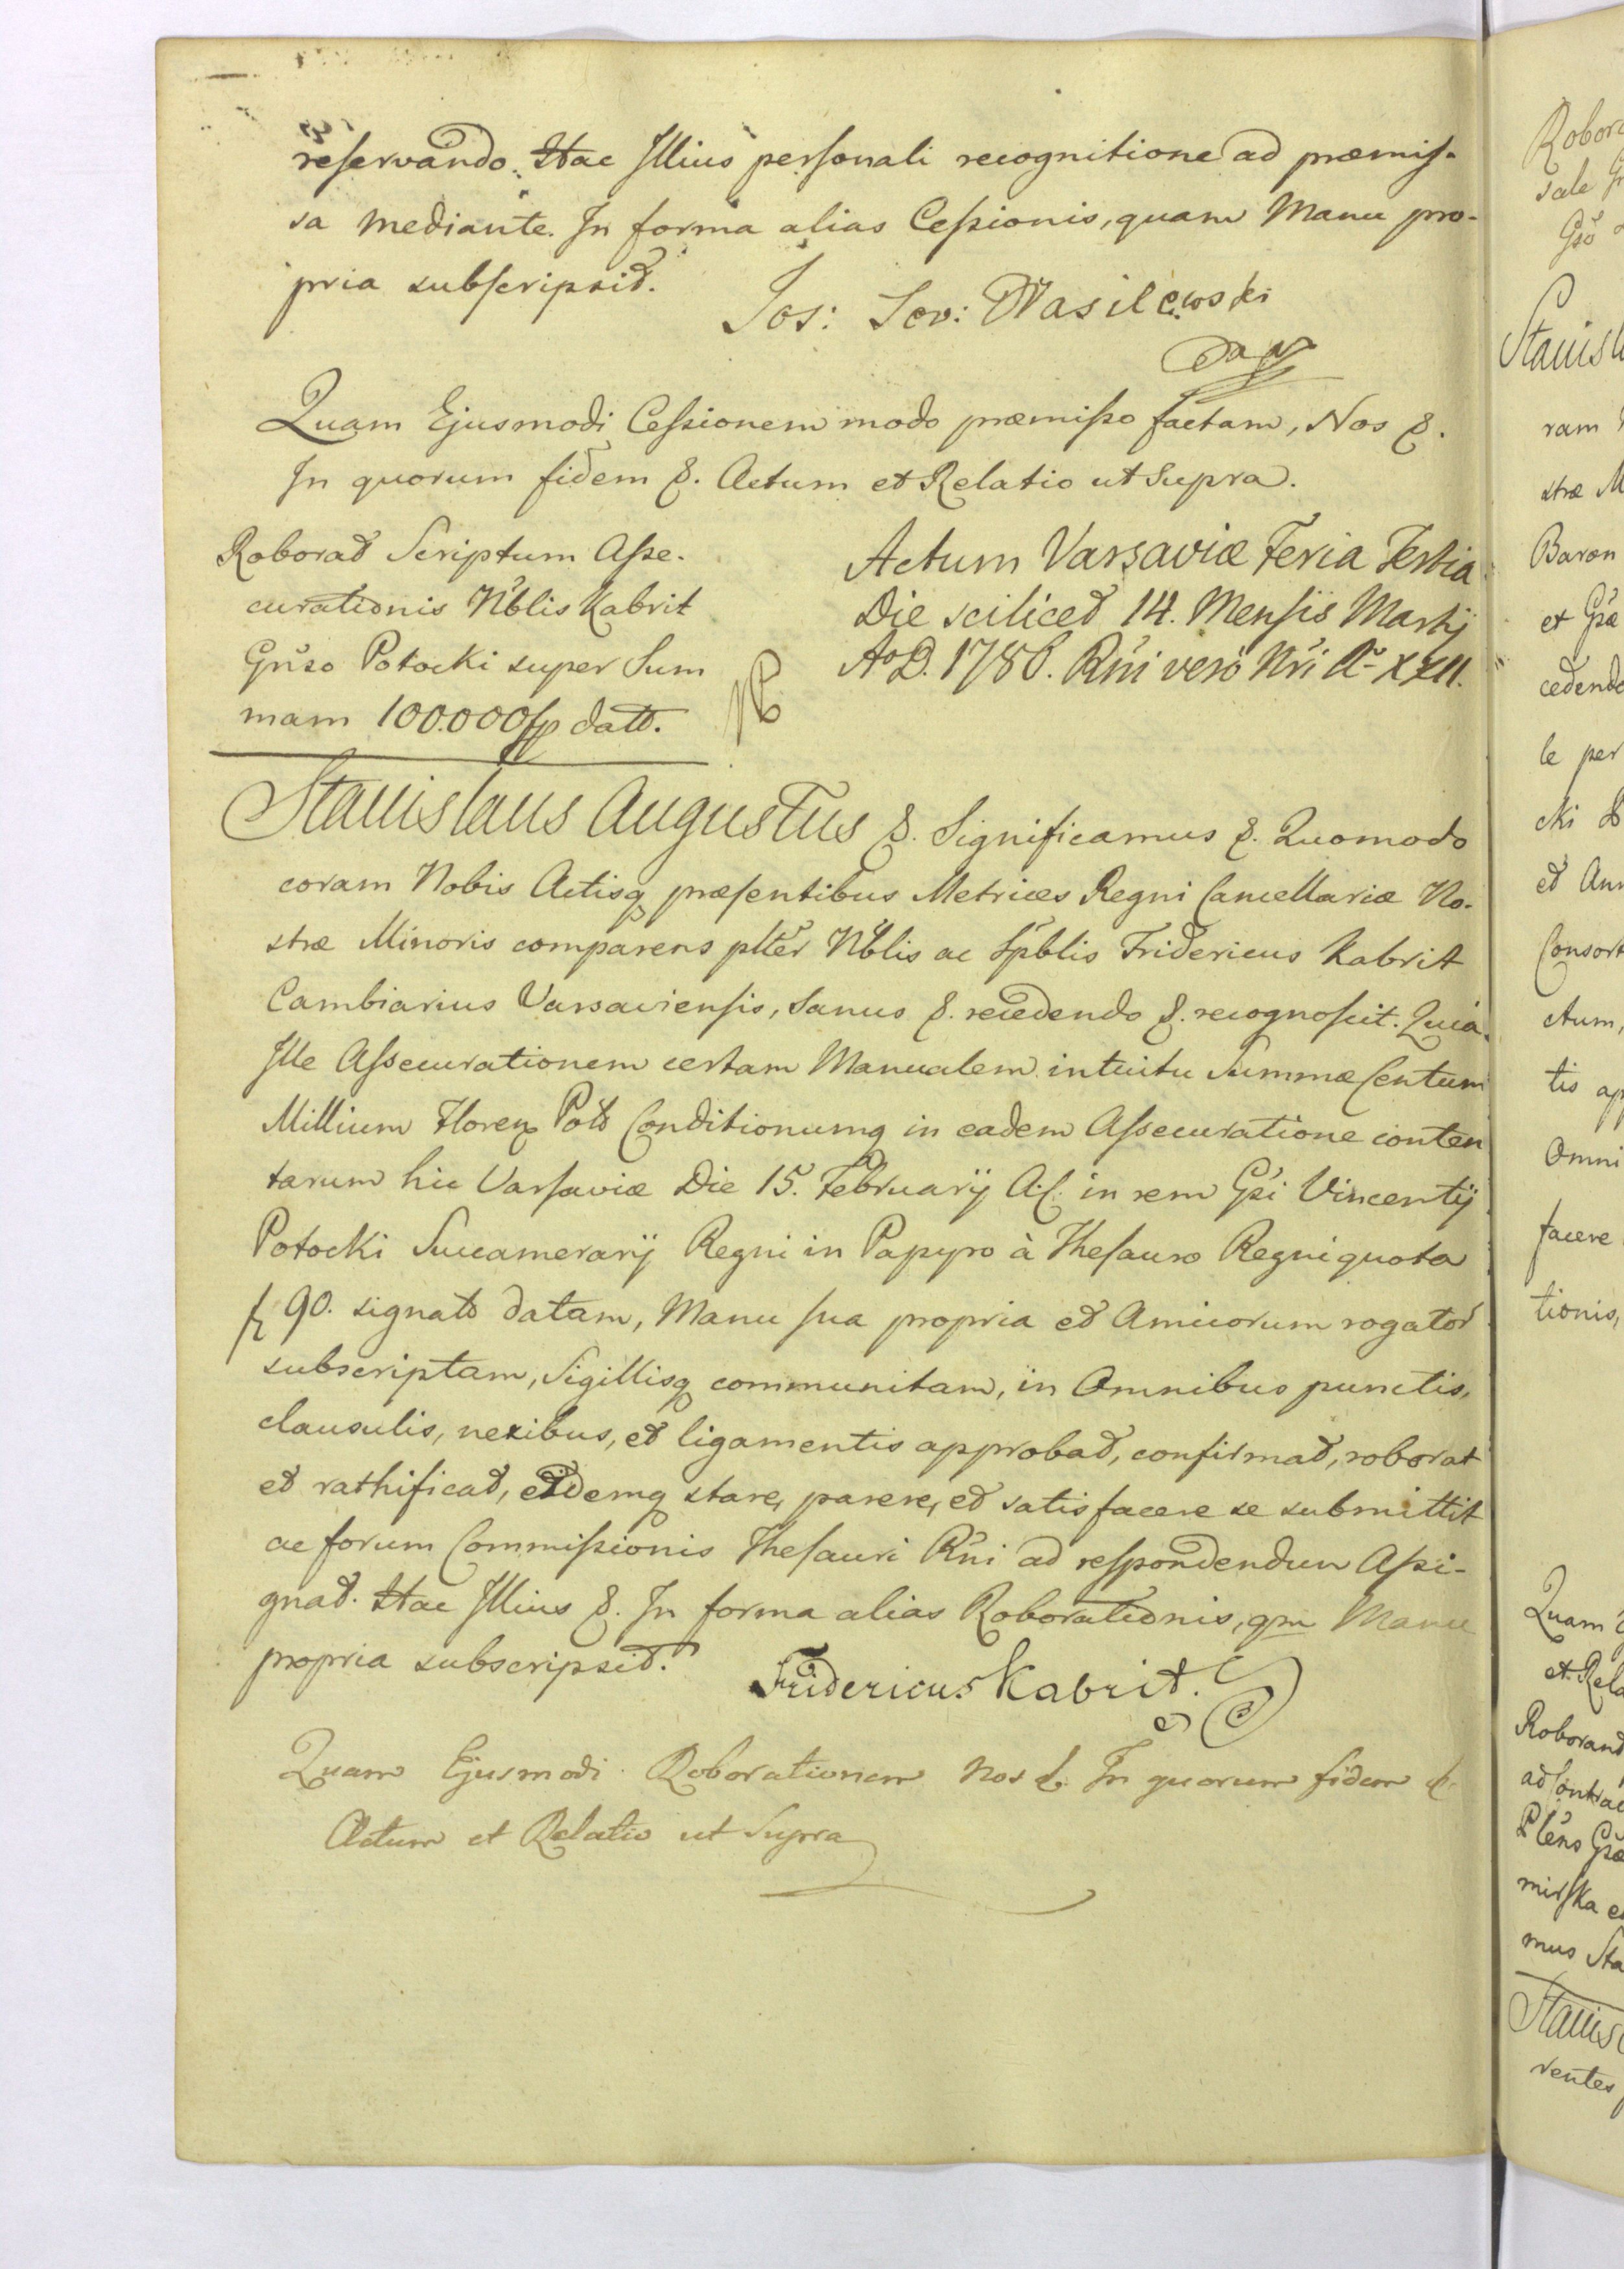 reservando. Hac Illius personali recognitione ad præmis-
sa mediante. In forma alias Cessionis, quam Manu pro-
pria subscripsit.
Jos: Sev: Wasilewski
Quam Ejusmodi Cessionem modo præmisso factam, Nos &.
In quorum fidem &. Actum et Relatio ut Supra.
Roborat Scriptum Asse-
curationis N'blis Kabrit
Gn'so Potocki super Sum
mam 100.000 fp datt.
Actum Varsaviæ Feria Tertia
Die scilicet 14. Mensis Martij
AoD. 1786. Rn'i vero Nr'i Ao XXII.
Stanislaus Augustus &. Significamus &. Quomodo
coram Nobis Actisq præsentibus Metrices Regni Cancellariæ No-
stræ Minoris comparens pltér N'blis ac Spblis Fridericus Kabrit
Cambiarius Varsaviensis, Sanus &. recedendo &. recognoscit. Quia
Ille Assecurationem certam Manualem intuitu Summæ Centum
Millium Floren Pol Conditionumq in eadem Assecuratione conten
tarum hic Varsaviæ Die 15. Februarij A.C. in rem Gsi Vincentij
Potocki Succamerarij Regni in Papyro à Thesauro Regni quota
f 90. signato datam, Manu sua propria et Amicorum rogator
subscriptam, Sigillisq communitam, in Omnibus punctis,
clausulis, nexibus, et ligamentis approbat, confirmat, roborat
et rathificat, eidemq stare, parere, et satisfacere se submittit
ac forum Commissionis Thesauri Rn'i ad respondendum Assi-
gnat. Hac Illius &. In forma alias Roborationis, qm Manu
propria subscripsit.
Fridericus Kabrit.
Quam Ejusmodi Roborationem Nos &. In quorum fidem &.
Actum et Relatio ut Supra
Robora
sale
Gso
Stanisl
ram
stræ M
Baron
et Gsæ
cedendo
le per
cki
et Ann
Consort
ctum,
tis ap
Omni
facere
tionis,
Quam
et Rela
Roborand
ad Contrac
Plens Gsæ
mirska
mus Sta
Stanis
ventes